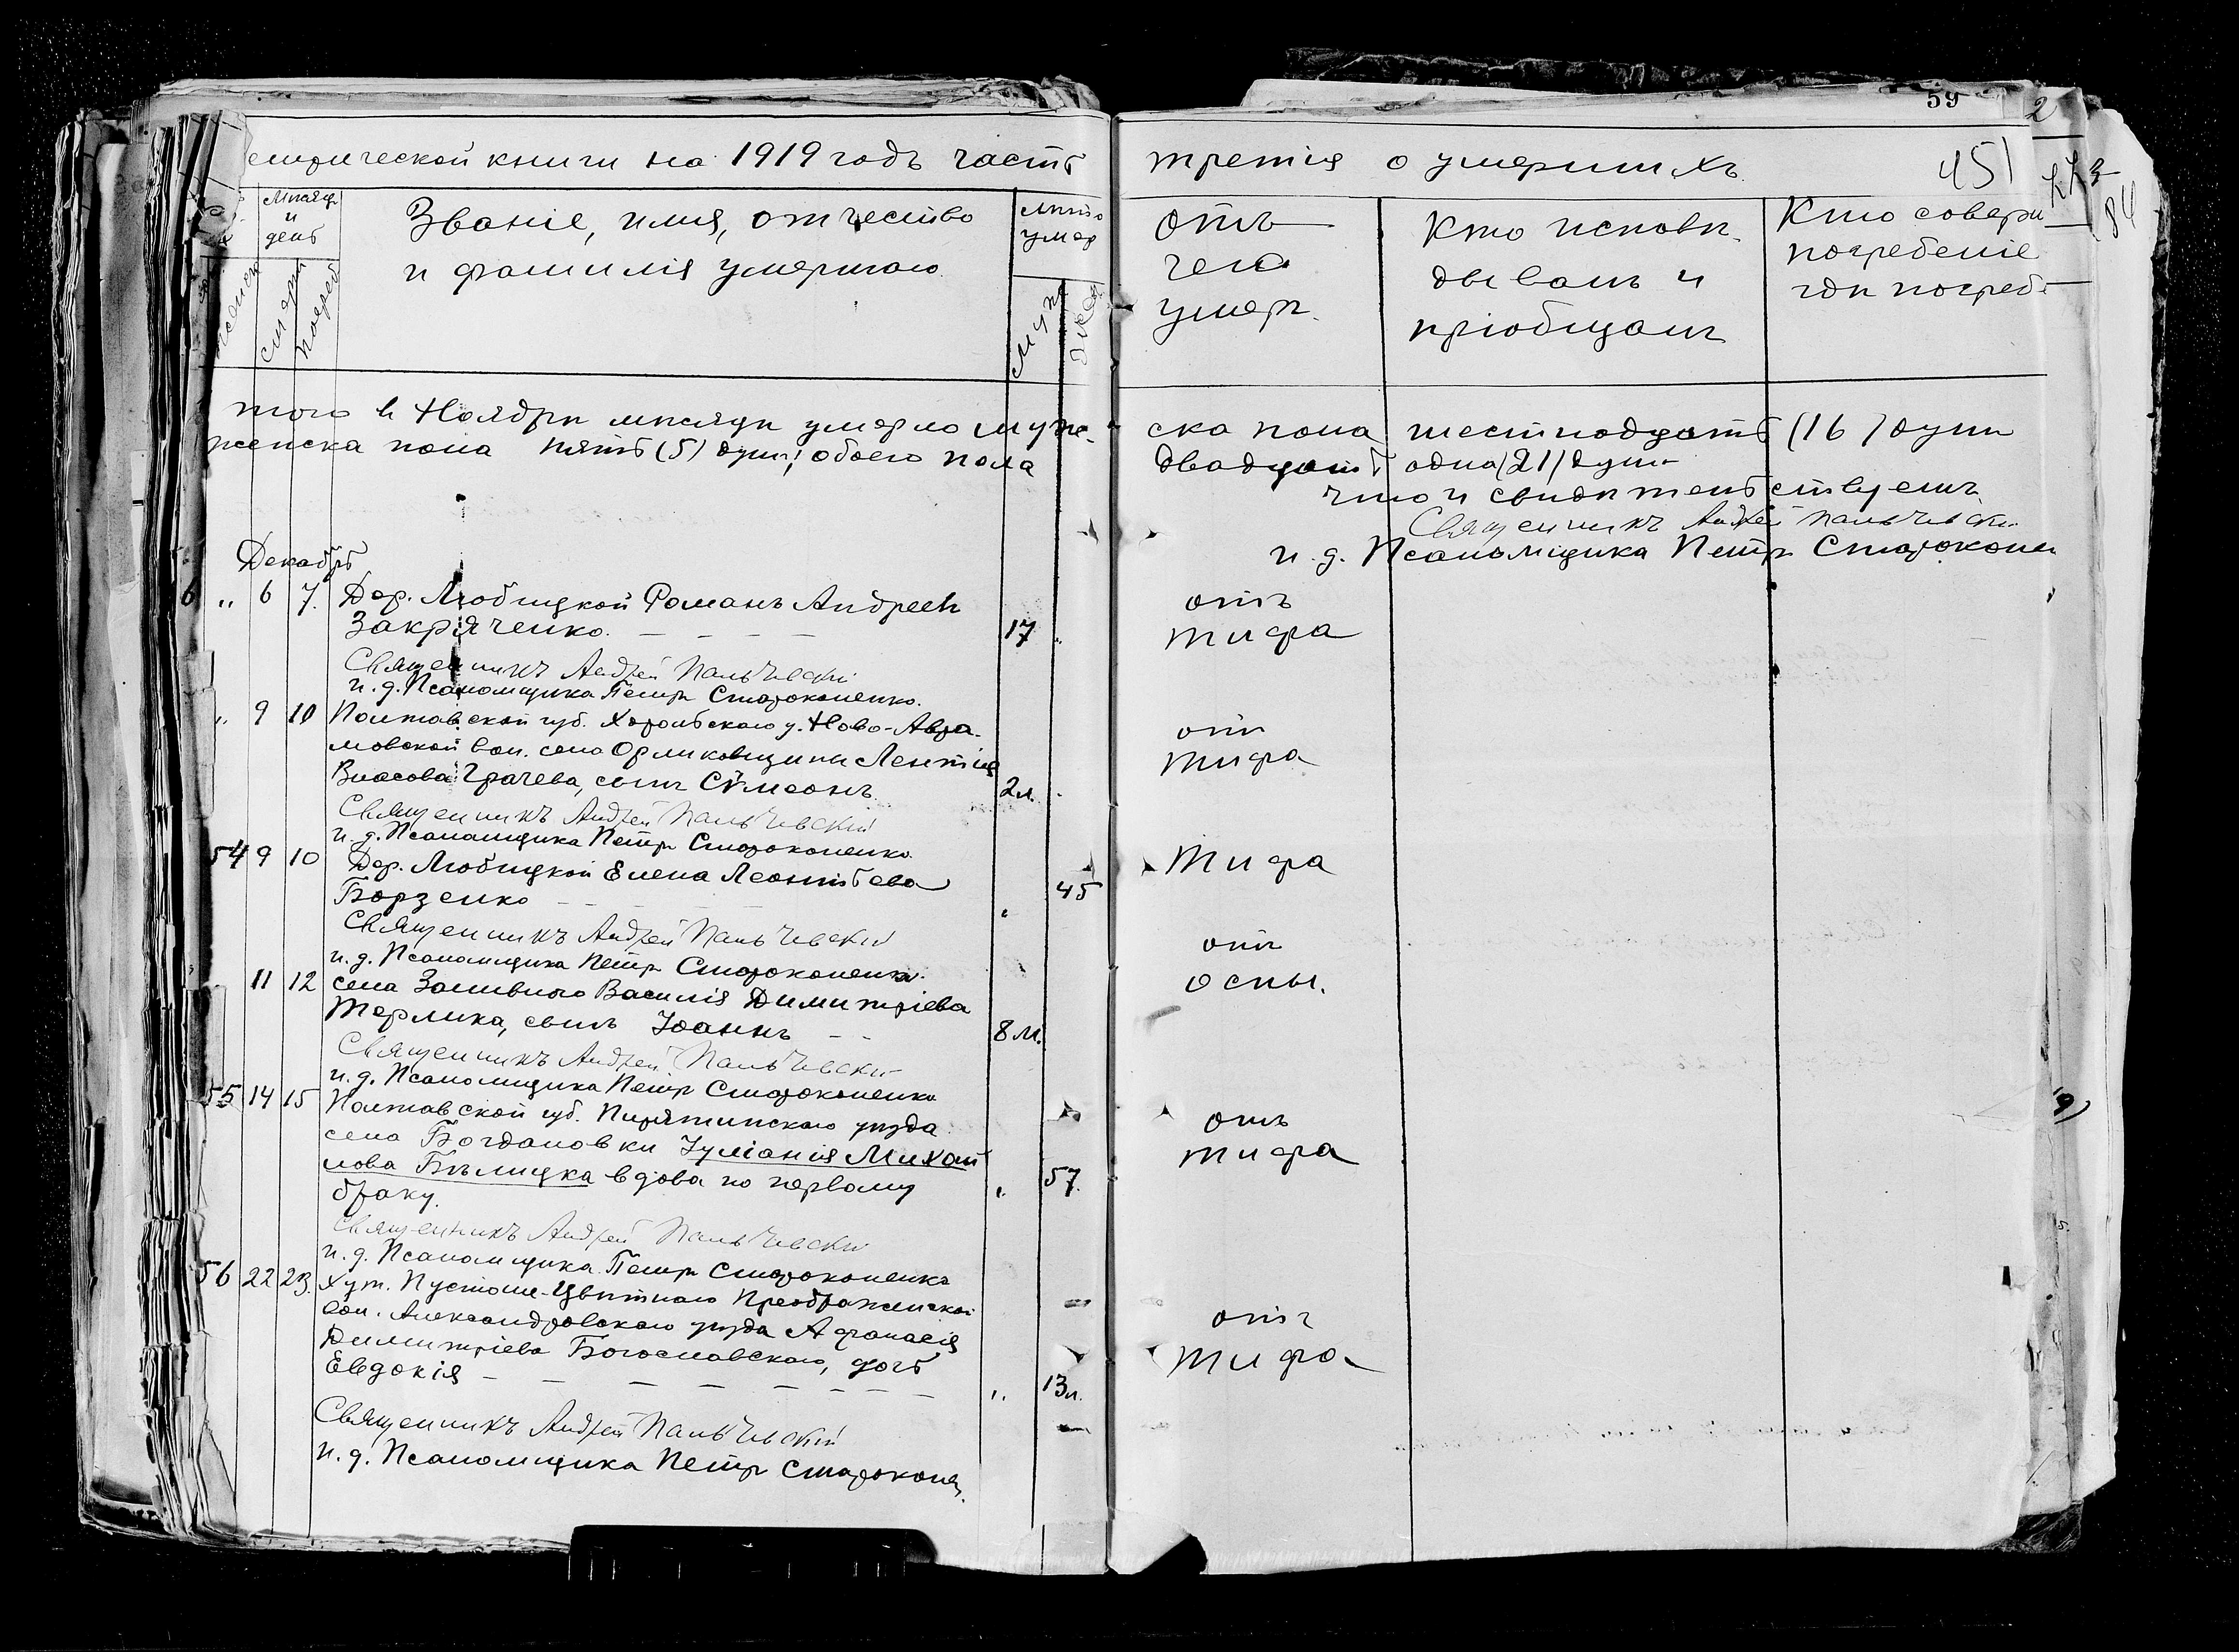 59
2
етрической книги на 1919 годъ часть
третія о умершихъ
451
84
Мѣсяцъ
и
день
Званіе, имя, отчество
и фамилія умершаго
Лѣто
умер
отъ
чего
умеръ.
Кто исповѣ-
дывалъ и
пріобщалъ
Кто соверш
погребеніе
гдѣ погреб
женска
смерти
погреб
муж
женс
того въ Ноябрѣ мѣсяцѣ умерло муже-
женска пола пять (5) душъ; обоего пола
ска пола шестнадцать (16) душъ
двадцать одна (21) душа
что и свидѣтельствуемъ
Священникъ Андрей Пальчевскій
и. д. Псаломщика Петръ Староконен
Декабрь
6 „ 6 7. Дер. Любицкой Романъ Андреевъ
Закряченко. — — — — 17 „
отъ
тифа
Священникъ Андрей Пальчевскій
и. д. Псаломщика Петръ Староконенко.
„ 9 10 Полтавской губ. Хорольскаго у. Ново-Авра-
мовской вол. села Орликовщины Леонтія
Власова Грачева, сынъ Сѵмеонъ 2 л.
отъ
тифа
Священникъ Андрей Пальчевскій
и. д. Псаломщика Петръ Староконенко.
54 9 10 Дер. Любицкой Елена Леонтьева
Борзенко — — — „ 45
тифа
Священникъ Андрей Пальчевскій
и. д. Псаломщика Петръ Староконенко.
11 12 села Заливного Василія Димитріева
Терлика, сынъ Іоаннъ — — 8 м.
отъ
оспы.
Священникъ Андрей Пальчевскій
и. д. Псаломщика Петръ Староконенко
55 14 15 Полтавской губ. Пирятинскаго уѣзда
села Богдановки Іуліанія Михай
лова Бѣлицка вдова по первому
браку. „ 57.
отъ
тифа
Священникъ Андрей Пальчевскій
и. д. Псаломщика Петръ Староконенко
56 22 23. Хут. Пустоше-Цвѣтнаго Преображенской
вол. Александровскаго уѣзда Афанасія
Димитріева Богославскаго, дочь
Евдокія — — — — — — — „ 13 л.
отъ
тифа
Священникъ Андрей Пальчевскій
и. д. Псаломщика Петръ Староконен.